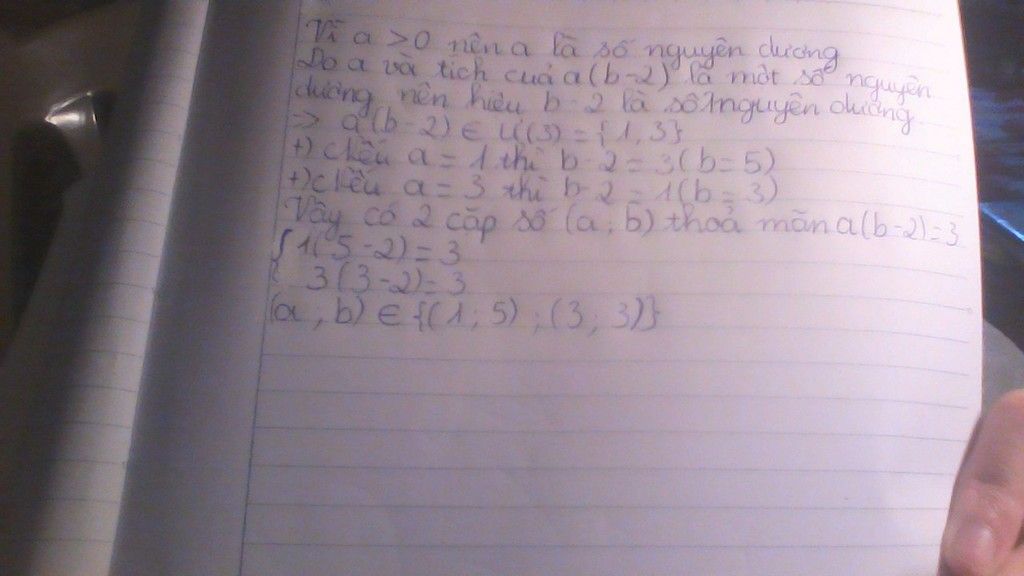 Vì a > 0 nên a là số nguyên dương
Do a và tích của a(b-2) là một số nguyên
dương nên hiệu b-2 là số nguyên dương
=> a(b-2) ∈ Ư(3) = {1, 3}
+) Nếu a = 1 thì b-2 = 3 (b = 5)
+) Nếu a = 3 thì b-2 = 1 (b = 3)
Vậy có 2 cặp số (a; b) thoả mãn a(b-2)=3
{ 1(5-2) = 3
3(3-2) = 3
(a, b) ∈ {(1; 5) ; (3; 3)}